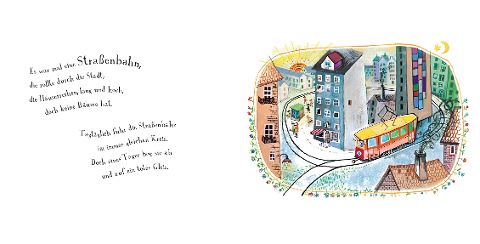 Es war mal eine Straßenbahn,
die rollte durch die Stadt,
die Häuserreihen, lang und hoch,
doch keine Bäume hat.
Tagtäglich fuhr die Straßenbahn
im immer gleichen Kreis.
Doch eines Tages bog sie ab
und auf ein totes Gleis.